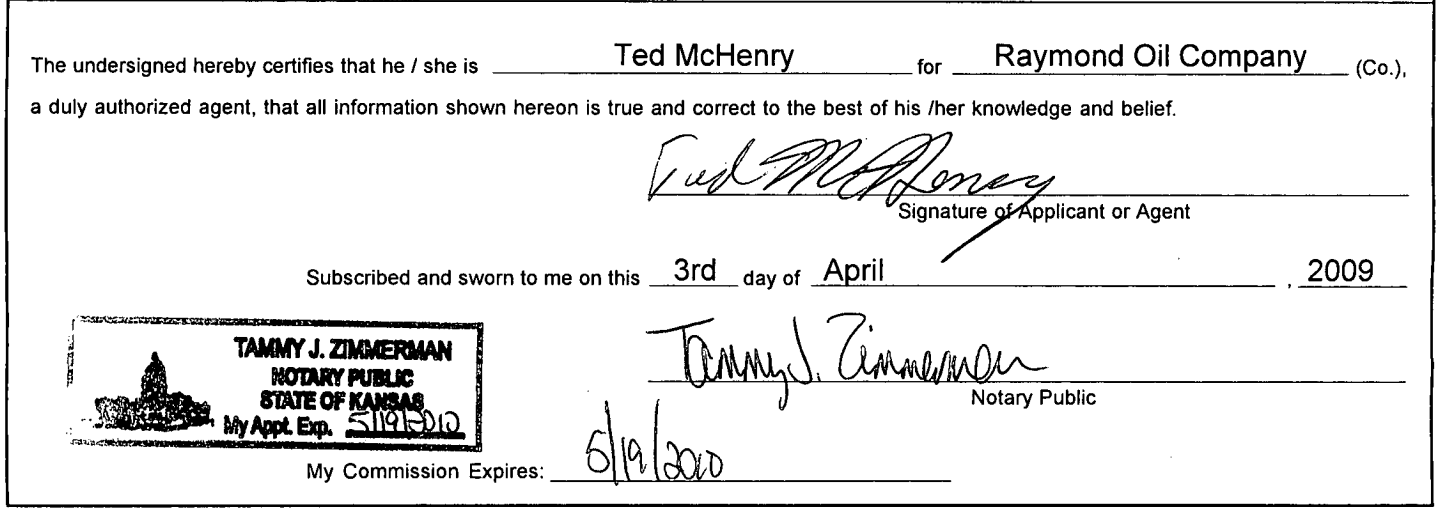 The undersigned hereby certifies that he / she is Ted McHenry for Raymond Oil Company (Co.),
a duly authorized agent, that all information shown hereon is true and correct to the best of his /her knowledge and belief.
Ted McHenry
Signature of Applicant or Agent
Subscribed and sworn to me on this 3rd day of April , 2009
TAMMY J. ZIMMERMAN
NOTARY PUBLIC
STATE OF KANSAS
My Appt. Exp. 5/19/2010
Tammy J. Zimmerman
Notary Public
My Commission Expires: 5/19/2010